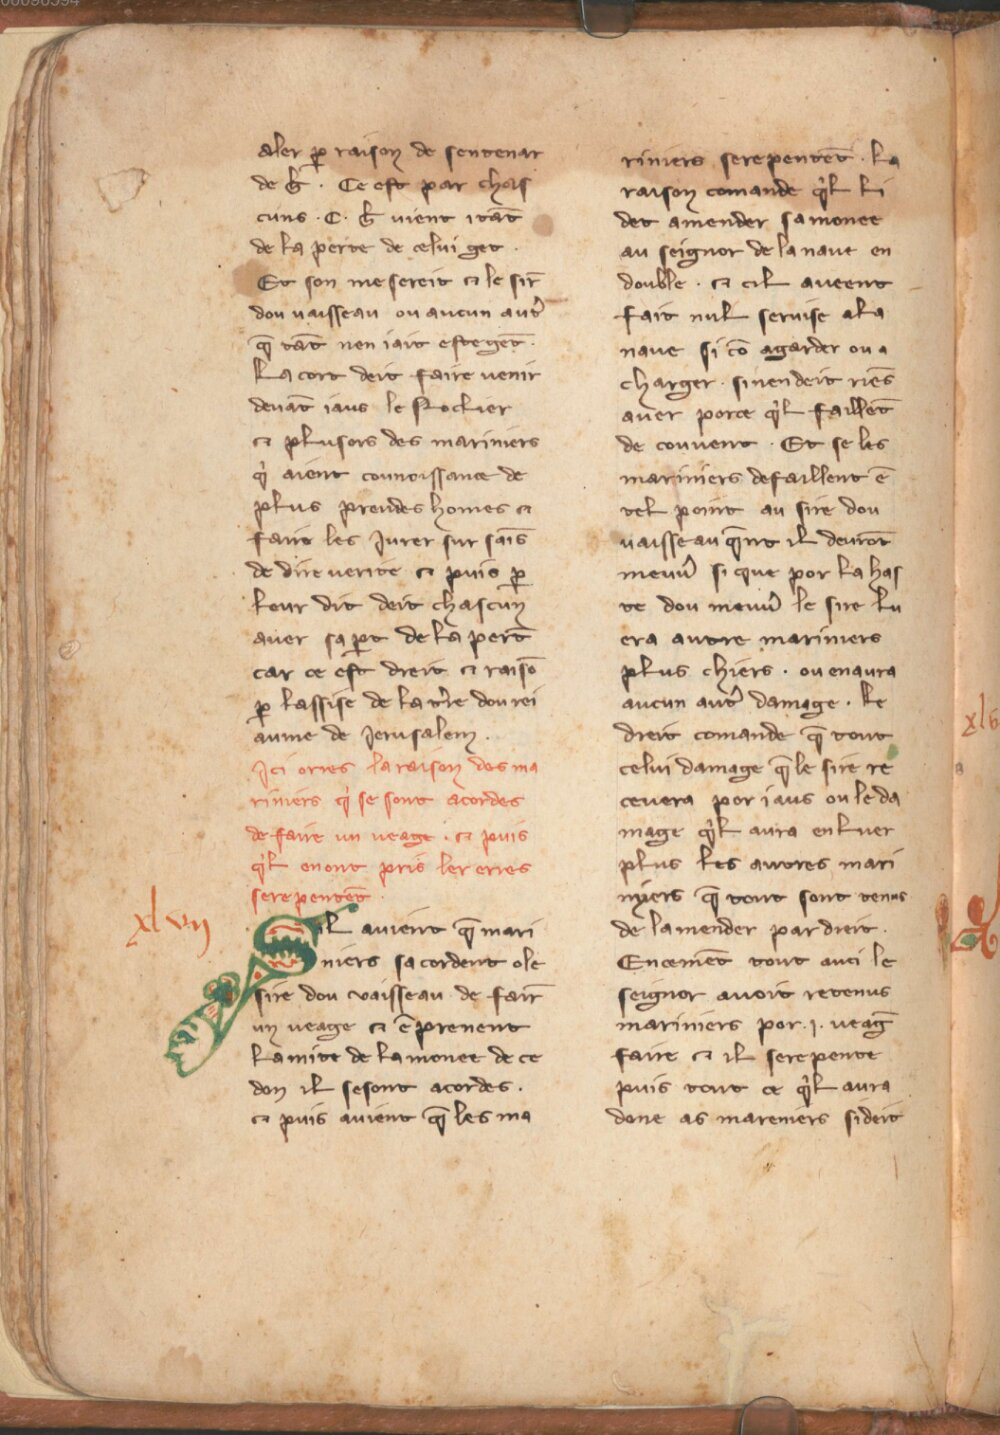 aler ꝑ raison de sentenar
de b̄ . Ce est par chas
cuns . C . b̄ uient itāt
de la perte de celui get .
Et son me sereit ⁊ le sir̄
dou uaisseau ou aucun aut͛
q̄ tāt nen iait este getē .
La cort deit faire uenir
deuāt iaus le Nochier
⁊ plusors des mariniers
qͥ aient connoissance de
plus preudes homes ⁊
faire les Jurer sur saīs
de dire uerite ⁊ puis ꝑ
leur dit deit chascun
auer sa ꝑt de la pert̄
car ce est dreit ⁊ raisō
ꝑ lassise de la t͛re dou rei
aume de Jerusalem .
Ici orres la raison des ma
riniers qͥ se sont acordes
de faire un ueage . ⁊ puis
qͥl en ont pris ler erres
serepentēt .
xlvij
Sil auient q̄ mari
niers sacordent o le
sire dou vaisseau de fair̄
un ueage ⁊ ē prenent
la mite de la monee de ce
don il se sont acordes .
⁊ puis auient q̄ les ma
riniers serepentēt . La
raison comande qͥl li
det amender sa monee
au seignor de la naue en
double . ⁊ cil aueent
fait nul seruise a la
naue si cō agarder ou a
charger . si nen deit riēs
auer porce qͥl faillēt
de conuent . Et se les
mariniers defaillent ē
tel point au sire dou
uaisseau q̄nt il deurōt
meuu͛ si que por la has
te dou meuu͛ le sire lu
era autre mariniers
plus chiers . ou en aura
aucun aut͛ damage . Le
dreit comande q̄ tout
celui damage q̄ le sire re
ceuera por iaus ou le da
mage qͥl aura en luer
plus les autres mari
nyers q̄ tout sont tenus
de lamender par dreit .
Encemēt tout auci le
seignor auoit retenus
mariniers por . j . ueaḡ
faire ⁊ il serepente
puis tout ce qͥl aura
done as mareniers si deit